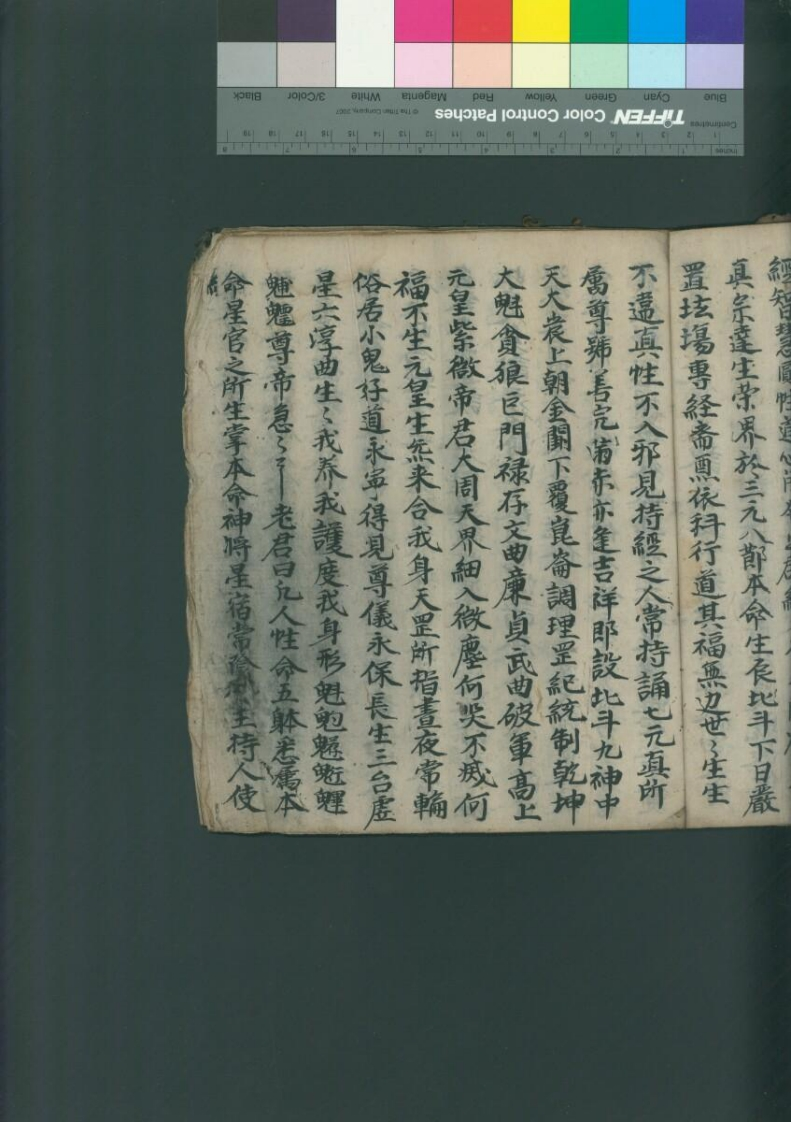 經智慧圓性
真宗達生榮界於三元八節本命生辰北斗下日嚴
置坛場專経斋醮依科行道其福無边世〻生生
不違真性不入邪見持經之人常持誦七元真所
属尊號善完
亦逢吉祥即設北斗九神中
天大
上朝金闕下覆崑崙調理罡紀統制乾坤
大魁貪狼巨門禄存文曲廉貞武曲破軍高上
元皇紫微帝君大周天界細入微塵何災不滅何
福不生元皇生炁来合我身天罡所指晝夜常輪
俗居小鬼好道永寧得見尊儀永保長生三台虚
星六淳曲生〻我养我護度我身形魁
魓尊帝急〻
老君曰凢人性命五躰悉属本
命星官之所生掌本命神将星宿常
主持人使
TIFFEN Color Control Patches
© The Tiffen Company, 2007
Centimetres
Inches
Blue
Cyan
Green
Yellow
Red
Magenta
White
3/Color
Black